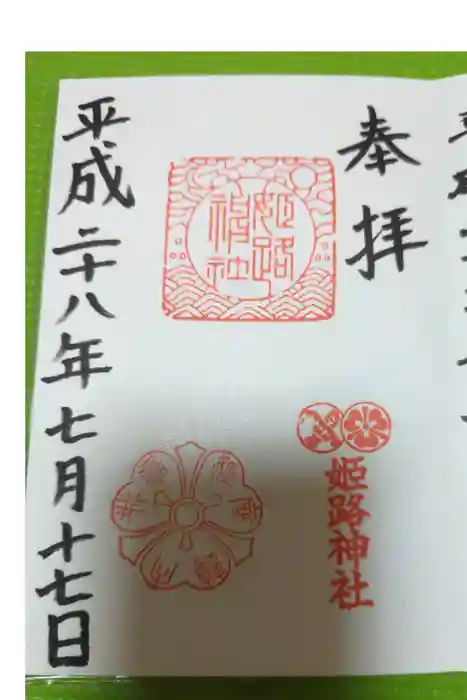 奉拝
姫路神社
姫路神社
平成二十八年七月十七日